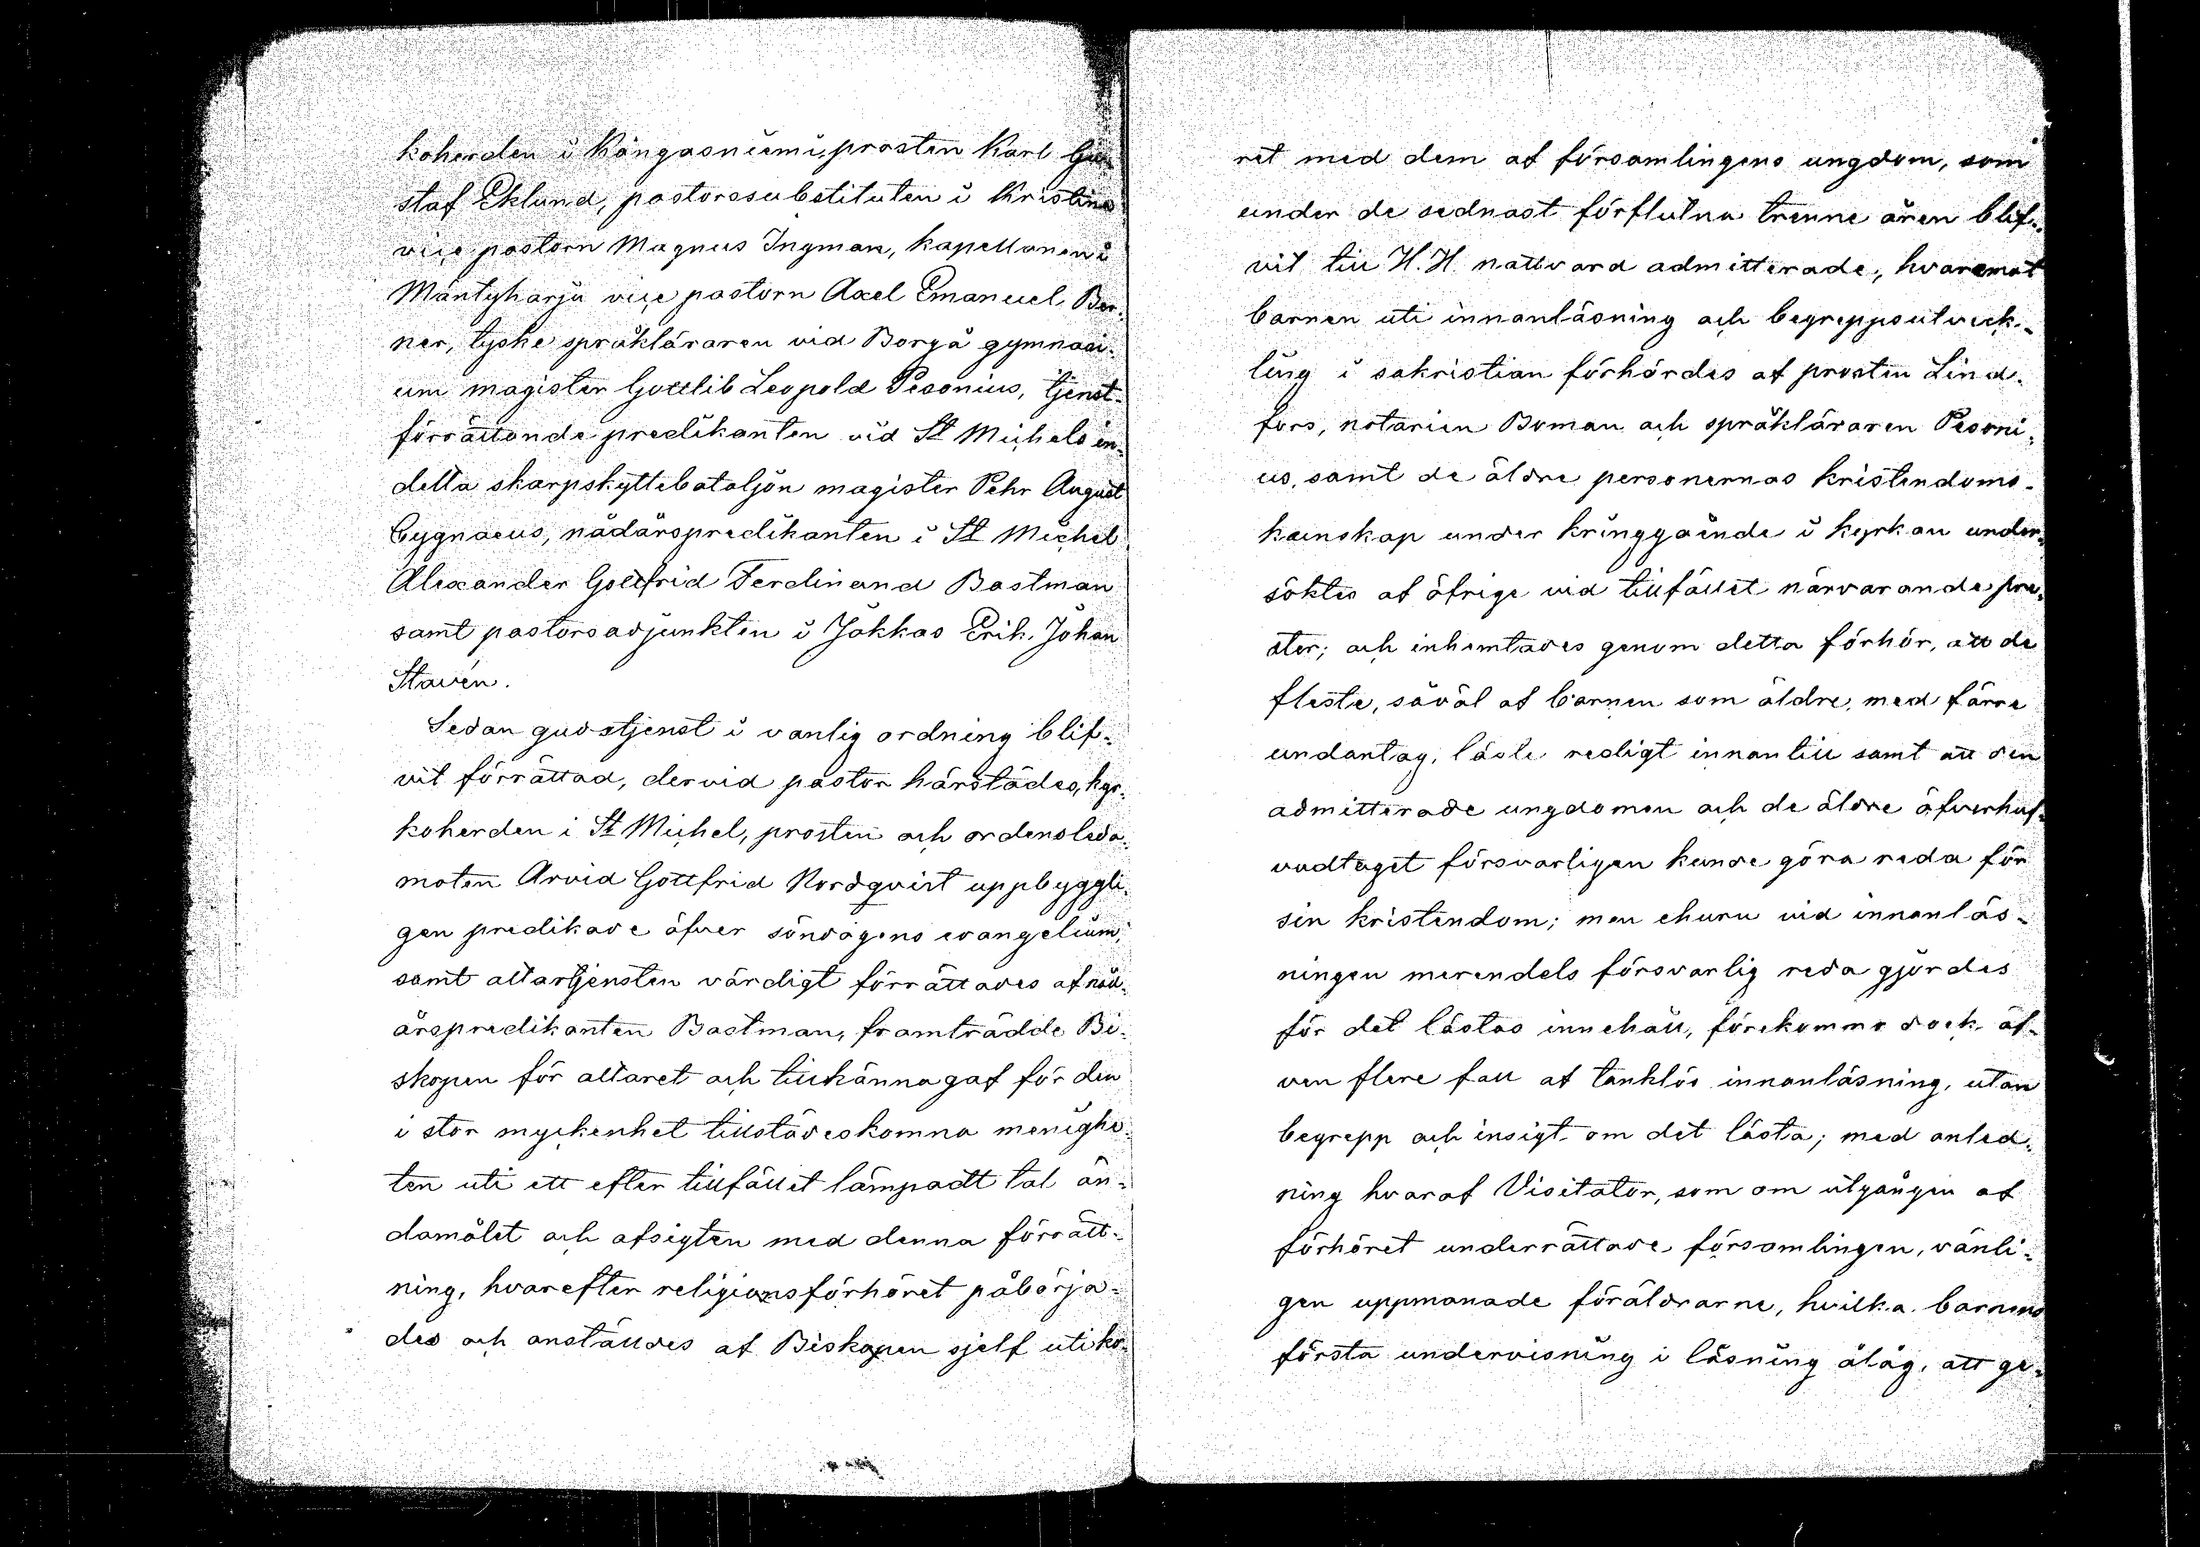 koherden i Kangasniemi, prosten Karl Gu-
staf Eklund, pastorssubstituten i Kristina
vice pastorn Magnus Ingman, kapellanen i
Mäntyharju vice pastorn Axel Emanuel Ber-
ner, tyske språkläraren vid Borgå gymnasi-
um magister Gottlib Leopold Pesonius, tjenst-
förrättande predikanten vid St Michels in-
delta skarpskyttebataljon magister Pehr August
Cygnaeus, nådårspredikanten i St Michel
Alexander Gottfrid Ferdinand Bastman
samt pastorsadjunkten i Jokkas Erik Johan
Stavén.
Sedan gudstjenst i vanlig ordning blif-
vit förrättad, dervid pastor härstädes, kyr-
koherden i St Michel, prosten och ordensleda-
moten Arvid Gottfrid Nordqvist uppbyggli-
gen predikade öfver söndagens evangelium,
samt altartjensten värdigt förrättades af nåd-
årspredikanten Bastman, framträdde Bi-
skopen för altaret och tillkännagaf för den
i stor myckenhet tillstädeskomna menighe-
ten uti ett efter tillfället lämpadt tal än-
damålet och afsigten med denna förrätt-
ning, hvarefter religionsförhöret påbörja-
des och anställdes af Biskopen sjelf uti ko-
ret med dem af församlingens ungdom, som
under de sednast förflutna trenne åren blif-
vit till H. H. nattvard admitterade, hvaremot
barnen uti innanläsning och begreppsutveck-
ling i sakristian förhördes af prosten Lind-
fors, notarien Boman och språkläraren Pesoni-
us, samt de äldre personernas kristendoms-
kunskap under kringgående i kyrkan under-
söktes af öfrige vid tillfället närvarande pre-
ster; och inhemtades genom detta förhör, att de
fleste, såväl af barnen som äldre, med färre
undantag, läste redigt innantill samt att den
admitterade ungdomen och de äldre öfverhuf-
vudtaget försvarligen kunde göra reda för
sin kristendom; men ehuru vid innanläs-
ningen merendels försvarlig reda gjordes
för det lästas innehåll, förekommo dock äf-
ven flere fall af tanklös innanläsning, utan
begrepp och insigt om det lästa; med anled-
ning hvaraf Visitator, som om utgången af
förhöret underrättade församlingen, vänli-
gen uppmanade föräldrarne, hvilka barnens
första undervisning i läsning ålåg, att ge-